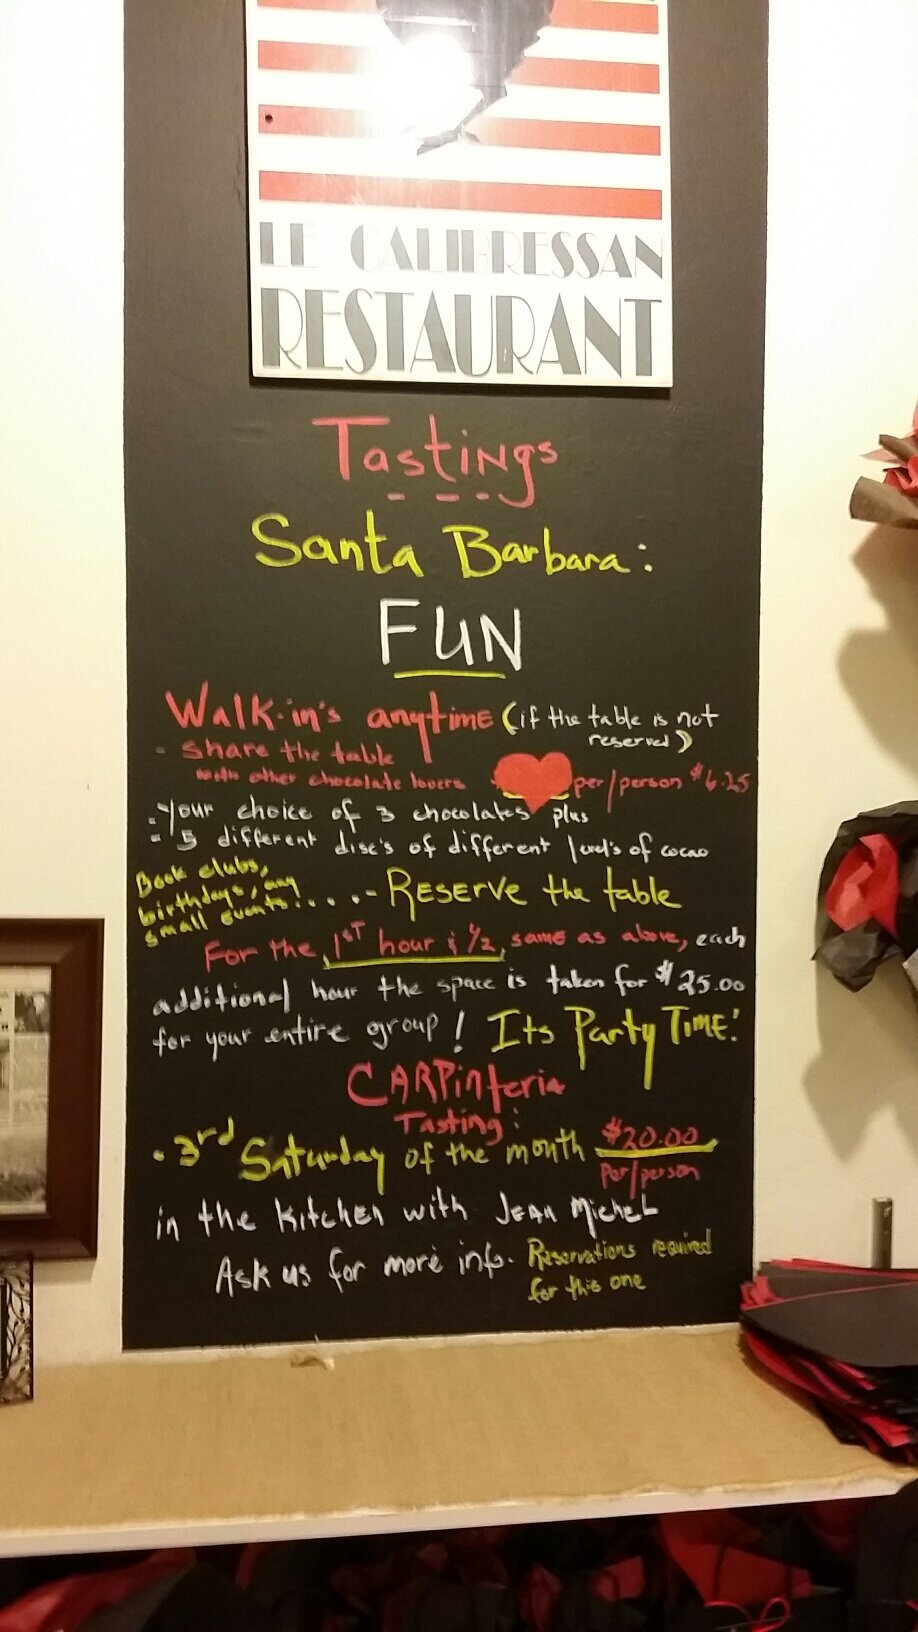 LE CALIBRESSAN
RESTAURANT
Tastings
Santa Barbara:
FUN
Walk-in's anytime (if the table is not
reserved)
- share the table
with other chocolate lovers per/person $6.25
- your choice of 3 chocolates plus
- 5 different disc's of different level's of cocao
Book clubs,
birthdays, any
small events:....- RESERVE the table
For the 1ST hour & ½, same as above, each
additional hour the space is taken for $25.00
for your entire group! Its Party TIME!
CARPinteria
Tasting:
• 3rd Saturday of the month $20.00
Per/person
in the Kitchen with Jean Michel
Ask us for more info. Reservations required
for this one